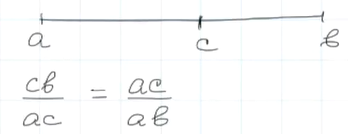 a c b
cb/ac = ac/ab